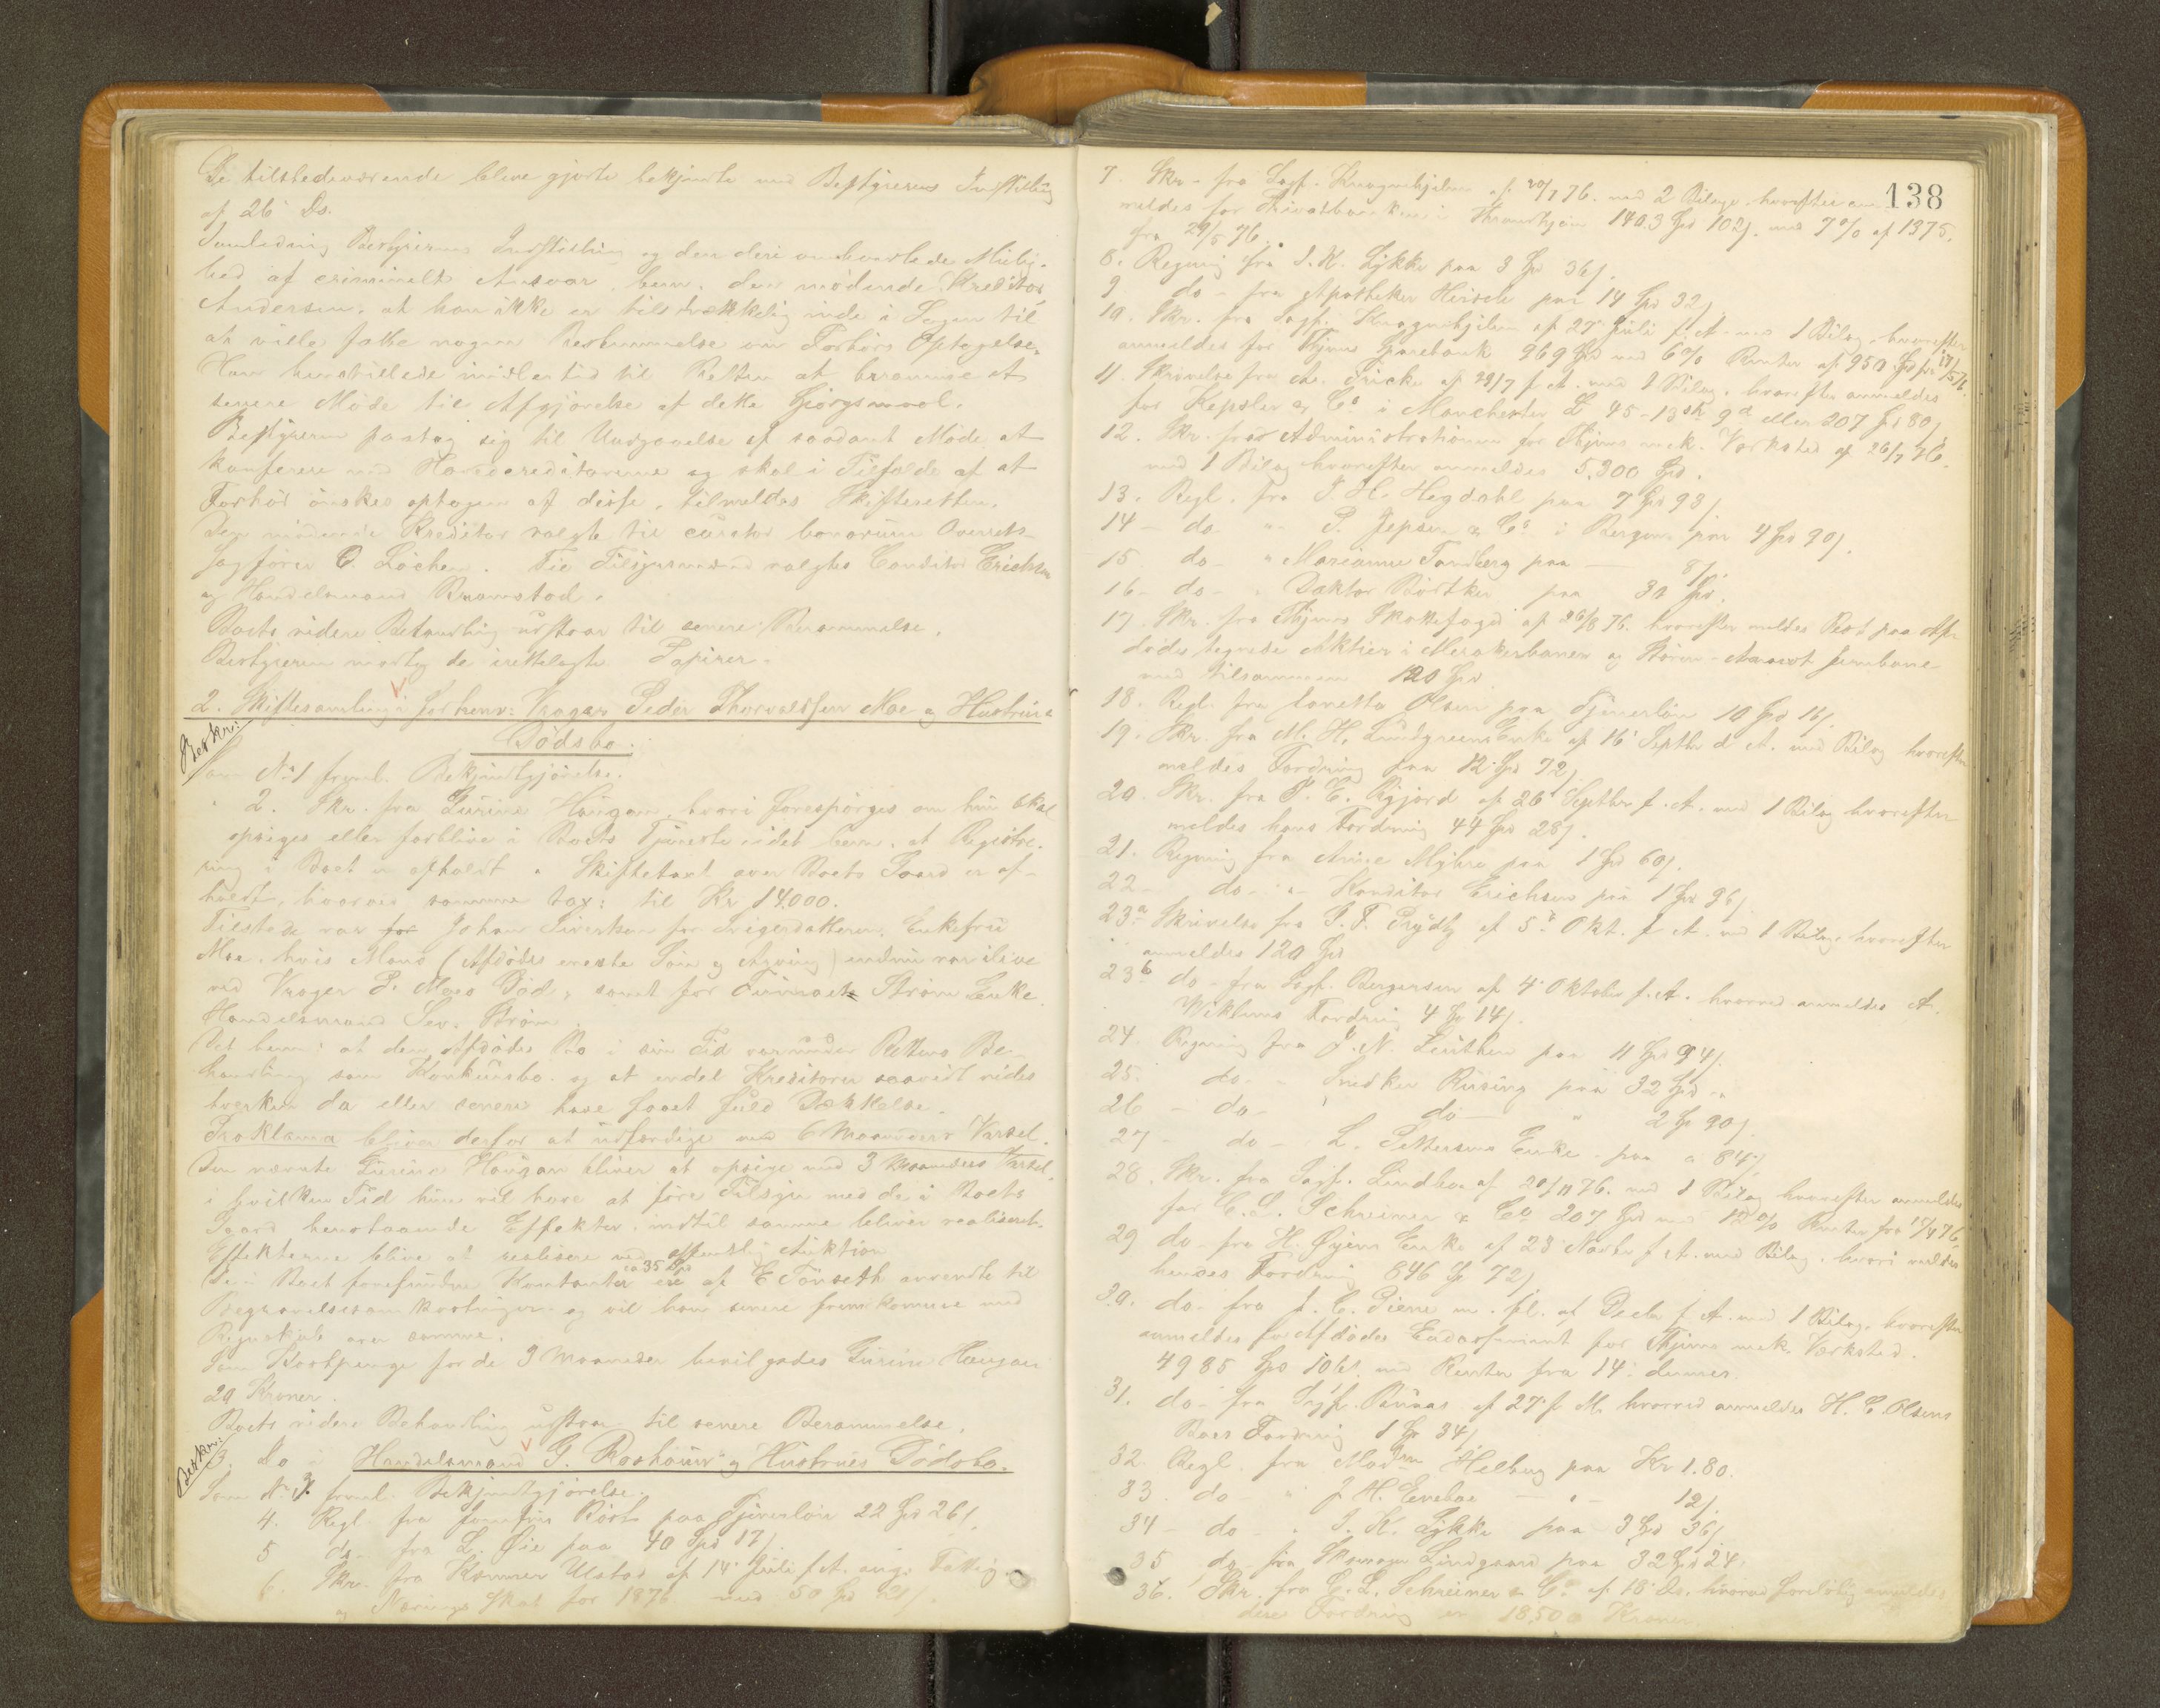 De tilstedeværende bleve gjorte bekjendte med Bestyrerens Indstilling
af 26 Ds.
I anledning Bestyrerens Indstilling og den deri omhandlede Mulig-
hed af criminelt Ansvar, bem. den mødende Kreditor
Andersen, at han ikke er tilstrækkelig inde i Sagen til
at ville fatte nogen Bestemmelse om Forhørs Optagelse.
Han henstillede imidlertid til Retten at beramme et
senere Møde til Afgjørelse af dette Spørgsmaal.
Bestyreren paatog sig til Undgaaelse af saadant Møde at
konferere med Hovedcreditorerne og skal i Tilfælde af at
Forhør ønskes optagen af disse, tilmeldes Skifteretten.
Den mødende Kreditor valgte til curator bonorum Overrets-
sagfører O. Løchen. Til Tilsynsmænd valgtes Conditor Erichsen
og Handelsmand Bromstad.
Boets videre Behandling udstaar til senere Berammelse.
Bestyreren modtog de irettelagte Papirer.
2. Skiftesamling i forhenv. Vrager Peder Thorvaldsen Moe og Hustrues
Dødsbo.
Beskr:
Som No 1 freml. Bekjendtgjørelse.
" 2. Skr. fra Gurine Haugan, hvori forespørges om hun skal
opsiges eller forblive i Boets Tjeneste idet bem. at Registre-
ring i Boet er afholdt. Skiftetaxt over Boets Gaard er af-
holdt, hvorved samme tax: til Kr 14.000.
Tilstede var for Johan Siverson for Svigerdatteren, Enkefru
Moe, hvis Mand (Afdødes eneste Søn og Arving) endnu var ilive
ved Vrager P. Moes Død, samt for Strøm Enke
Handelsmand Sev. Strøm.
Det bem: at den Afdødes Bo i sin Tid var under Rettens Be-
handling som Konkursbo og at endel Kreditorer saavidt vides
hverken da eller senere have faaet fuld Dækkelse.
Proklama bliver derfor at udfærdige med 6 Maaneders Varsel.
Den nævnte Gurine Haugan bliver at opsige med 3 Maaneders Varsel,
i hvilken Tid hun vil have at føre Tilsyn med de i Boets
Gaard henstaaende Effekter, indtil samme bliver realiseret.
Effekterne blive at realisere ved offentlig Auktion
De i Boet forefundne Kontanter ca 35 Spd ere af E Tønseth anvendte til
Begravelsesomkostninger og vil han senere fremkomme med
Regnskab over samme.
Som Kostpenge for de 3 Maaneder bevilgedes Gurine Haugan
20 Kroner.
Boets videre Behandling udstaar til senere Berammelse.
Beskr:
3. Do i Handelsmand G. Roshauw og Hustrues Dødsbo.
Som No 3. freml. Bekjendtgjørelse.
4. Regl. fra Jomfru Born paa Tjenerløn 22 Spd 26/.
5 do- fra L. Øie paa 40 Spd 17/.
6. Skr. fra Kæmner Ulstad af 14' Juli f. A. ang. Fattig-
og Nærings Skat for 1876 med 50 Spd 21/.
138
7. Skr- fra Sagf. Kragnæs af 20/7 76. med 2 Bilage, hvorefter an-
meldes for Privatbanken i Throndhjem 1403 Spd 102/. med 7% af 1375.
fra 29/5 76.
8. Regning fra I. K. Lykke paa 3 Spd 36/.
9 do- fra Apotheker Hirsch paa 14 Spd 32/.
10. Skr. fra Sagf. af 27' Juli f. A. med 1 Bilag, hvorefter
anmeldes for Thjems Sparebank 969 Spd med 6% Renter af 950 Spd fra
11. Skrivelse fra Ar. Fricke af 29/7 f A. med 1 Bilag, hvorefter anmeldes
for Kessler & Co i Manchester £ 45-13 sh 9 d eller 207 Spd 80/.
12. Skr. fra Administrationen for Thjems mek. Værksted af 26/7 76.
med 1 Bilag hvorefter anmeldes 5.300 Spd.
13. Regl. fra J. H. Hegdahl paa 7 Spd 93/.
14 - do - " P. Jepsen & Co i Bergen paa 4 Spd 90/.
15 do - " Marianne Sandberg paa - 8/.
16- do - " Doktor Bødtker paa 30 Spd.
17. Skr. fra Thjems Skattefoged af 26/8 76. hvorefter meldes Rest paa Af-
dødes tegnede Aktier i Merakerbanen og Støren-Aamot Jernbane
med tilsammen 120 Spd
18. Regl. fra Loretta Olsen paa Tjenerløn 10 Spd 16/.
19. Skr. fra M. H. Lundgreens Enke af 16' Septbr d. A. med Bilag hvorefter
meldes Fordring paa 12 Spd 72/.
20. Skr. fra P. E. Rygjord af 26' Septbr f. A. med 1 Bilag hvorefter
meldes hans Fordring 44 Spd 28/.
21. Regning fra Arne Myhre paa 1 Spd 60/.
22- do- "- Konditor Erichsen paa 1 Spd 96/.
23a Skrivelse fra G. F. Prydtz af 5' Okt. f A. med 1 Bilag, hvorefter
anmeldes 120 Spd
23b do - fra Sagf. Bergersen af 4' Oktober f. A. hvorved anmeldes A.
Wiklunds Fordring 4 Spd 14/.
24. Regning fra J. N. Leuthen paa 11 Spd 94/.
25. do- " Snedker Rusing paa 32 Spd -"
26 - do- " do- " 2 Spd 90/.
27 - do - L. Pettersens Enke paa " 84/.
28. Skr. fra Sagf. Lindboe af 20/11 76. med 1 Bilag hvorefter anmeldes
for C. L. Schreiner & Co 207 Spd med 12% Renter fra 17/4 76
29 do- fra H. Øyens Enke af 28' Novbr f A. med Bilag, hvori meldes
hendes Fordring 846 Spd 72/.
30. do- fra J. C. Piene m. fl. af Decbr f A. med 1 Bilag, hvorefter
anmeldes for Afdødes Endossement for Thjems mek. Værksted
4985 Spd 106/. med Renter fra 14' dennes.
31. do- fra Sagf. af 27' f. M. hvorved anmeldes H. C. Olsens
Boes Fordring 1 Spd 34/.
32. Regl. fra Madm Helberg paa Kr 1.80.
33. do - " J. H. Eneboe - " - 12/.
34 - do - " I. K. Lykke paa 3 Spd 36/.
35 do- fra Skomager Lindgaard paa 32 Spd 24.
36. Skr. fra C. L. Schreiner & Co af 18' Ds. hvorved foreløbig anmeldes
deres Fordring er 18.500 Kroner.